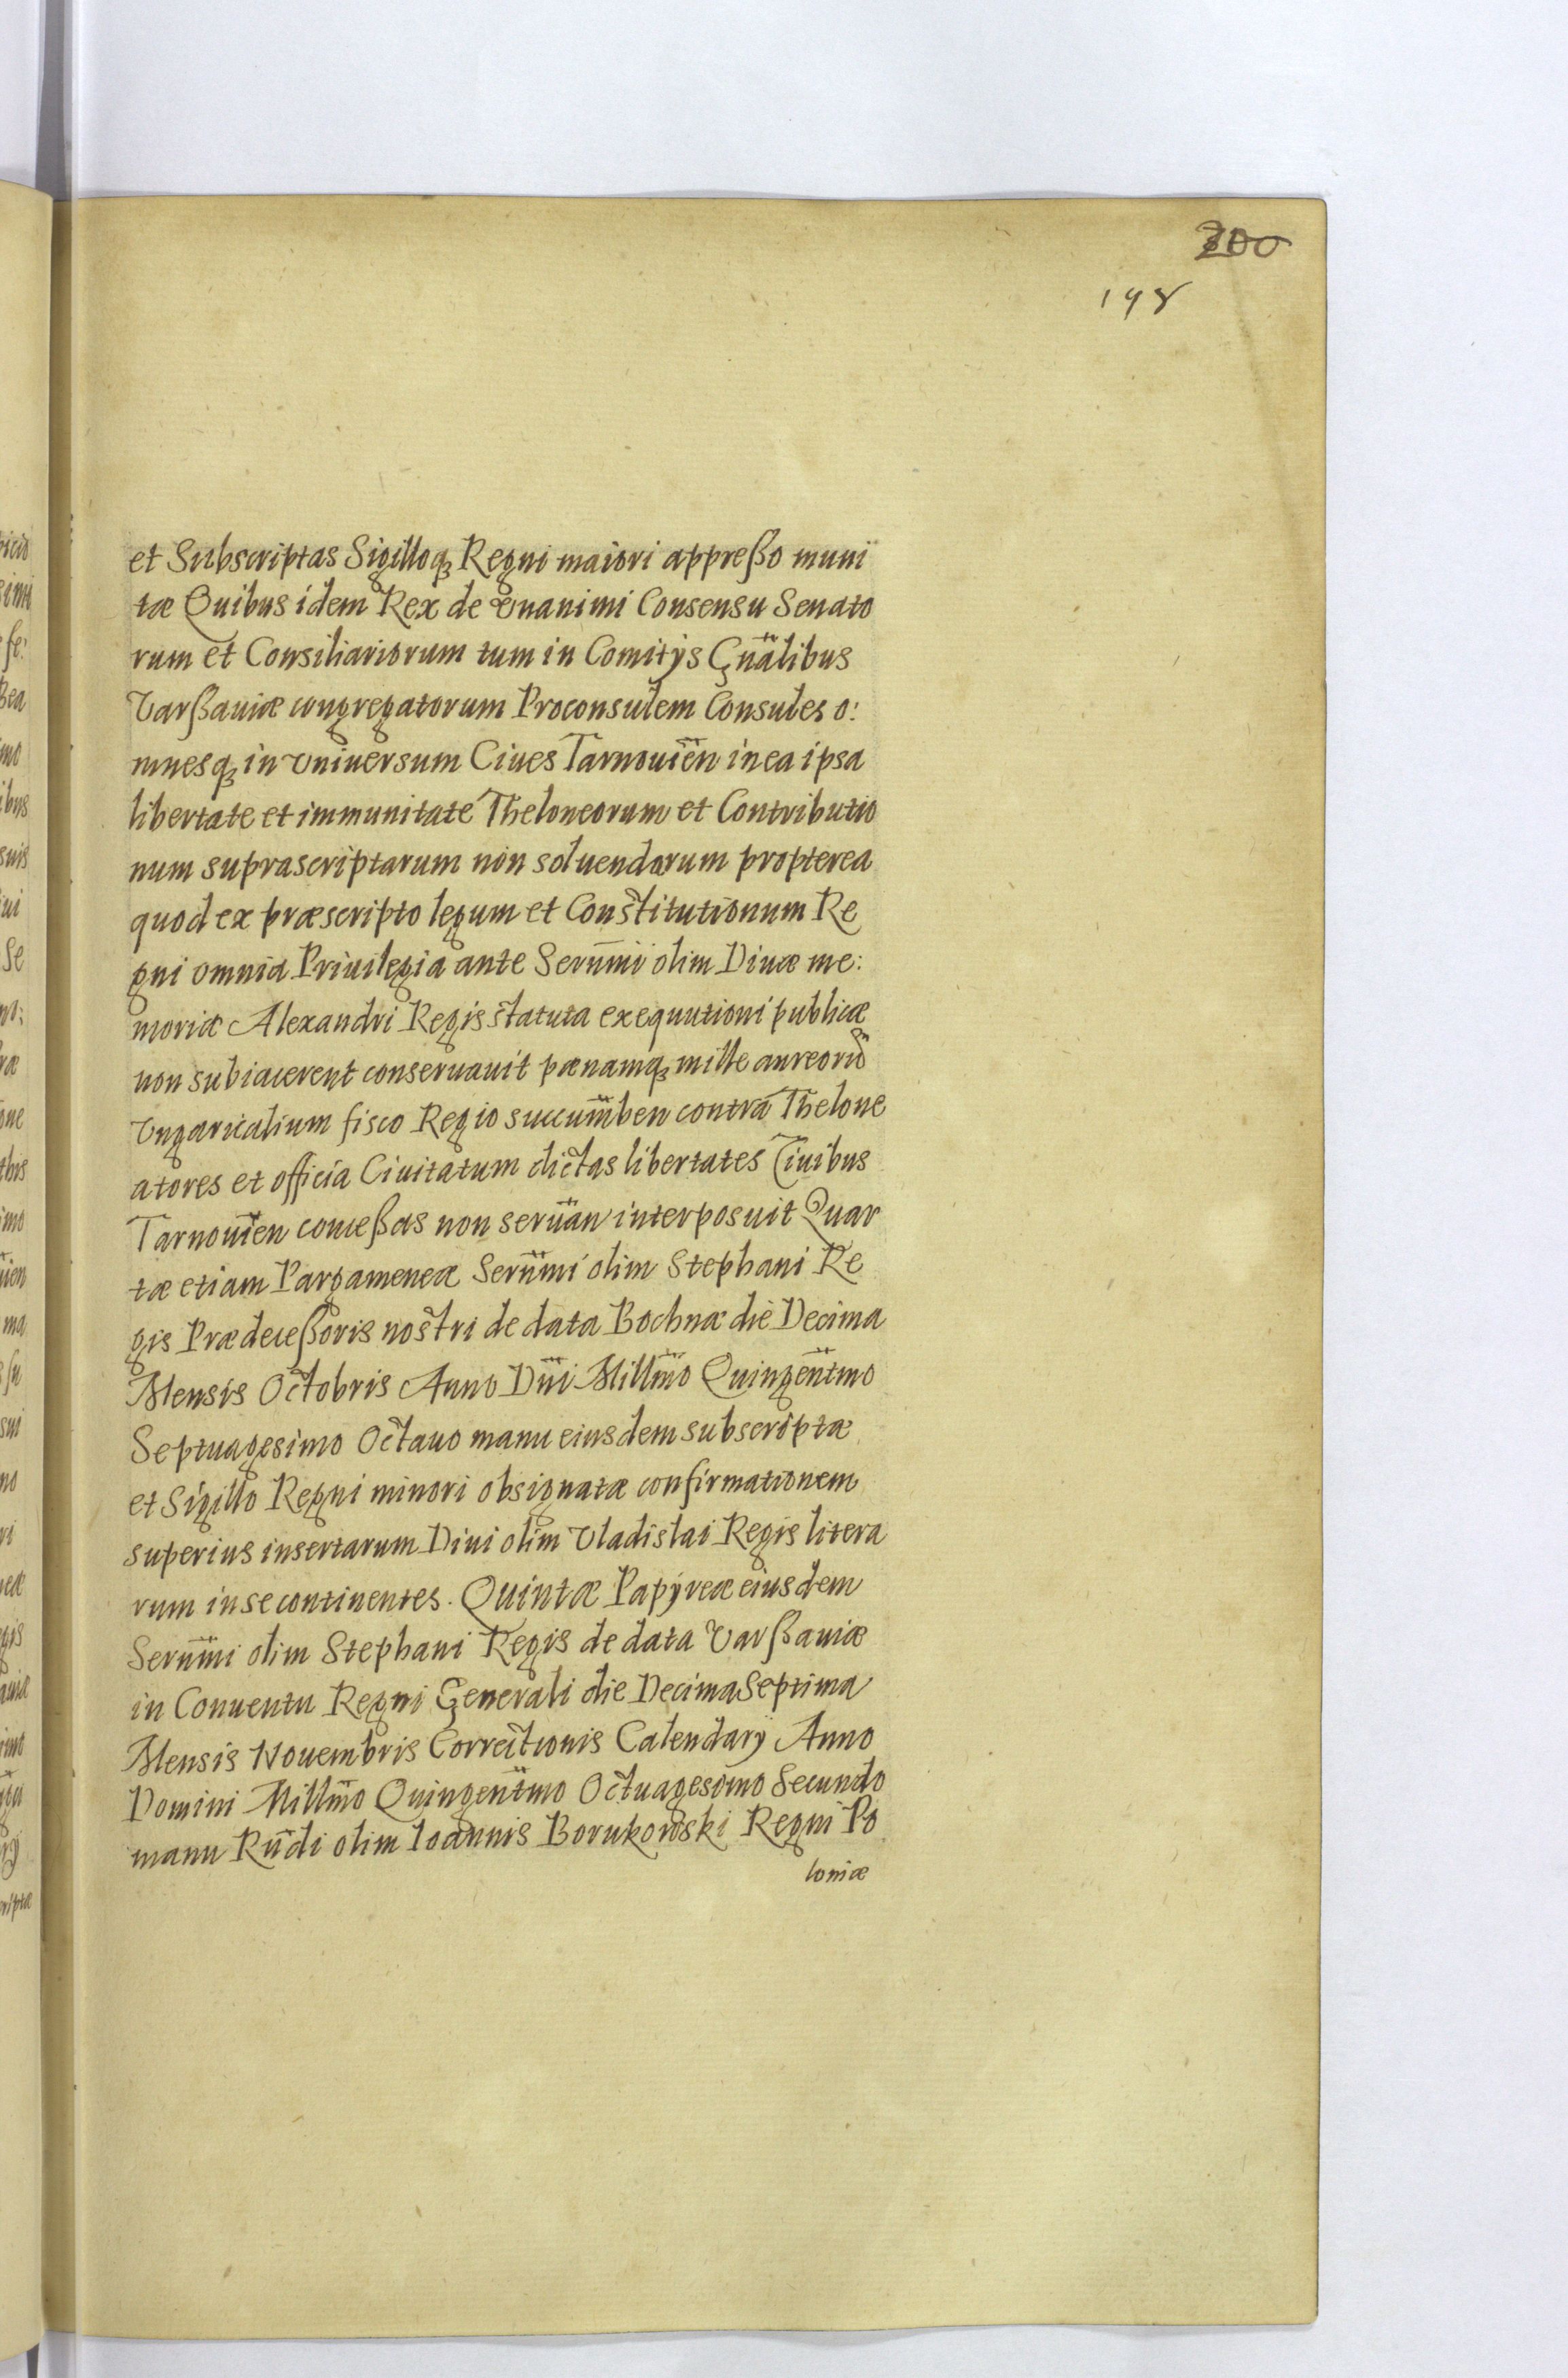 200
198
et Subscriptas Sigilloq₃ Regni maiori appreßo muni
tæ Quibus idem Rex de vnanimi Consensu Senato
rum et Consiliariorum tum in Comitÿs Gn̄alibus
Varßauiæ congregatorum Proconsulem Consules o:
mnesq₃ in vniuersum Ciues Tarnouien̄ in ea ipsa
libertate et immunitate Theloneorum et Contributio
num suprascriptarum non soluendarum propterea
quod ex præscripto legum et Constitutionum Re
gni omnia Priuilegia ante Serm̄mi olim Diuæ me:
moriæ Alexandri Regis statuta exequutioni publicæ
non subiacerent conseruauit pænamq₃ mille aureorū
Vngaricalium fisco Regio succumben̄ contra Thelone
atores et officia Ciuitatum dictas libertates Ciuibus
Tarnouien̄ conceßas non seruan̄ interposuit Quar
tæ etiam Pargameneæ Sern̄mi olim Stephani Re
gis Prædeceßoris nostri de data Bochnæ die Decima
Mensis Octobris Anno Dn̄i Millm̄o Quingen̄tmo
Septuagesimo Octauo manu eiusdem subscriptæ
et Sigillo Regni minori obsignatæ confirmationem
superius insertarum Diui olim Vladislai Regis litera
rum in se continentes. Quintæ Papÿreæ eiusdem
Sern̄mi olim Stephani Regis de data Varßauiæ
in Conuentu Regni Generali die Decima Septima
Mensis Nouembris Correctionis Calendarÿ Anno
Domini Millm̄o Quingen̄tmo Octuagesimo Secundo
manu Rn̄di olim Ioannis Borukowski Regni Po
loniæ